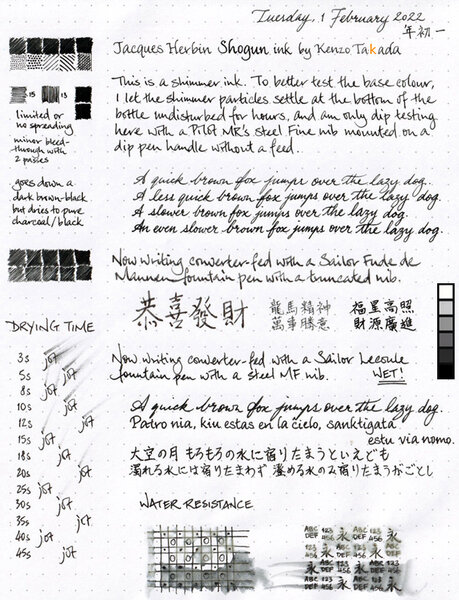 Tuesday, 1 February 2022
年初一
Jacques Herbin Shogun ink by Kenzo Takada
This is a shimmer ink. To better test the base colour,
I let the shimmer particles settle at the bottom of the
bottle undisturbed for hours, and am only dip testing
here with a Pilot MR's steel Fine nib mounted on a
dip pen handle without a feed.
15 13
limited or
no spreading
minor bleed-
through with
2 passes
goes down a
dark brown-black
but dries to pure
charcoal/black
A quick brown fox jumps over the lazy dog.
A less quick brown fox jumps over the lazy dog.
A slower brown fox jumps over the lazy dog.
An even slower brown fox jumps over the lazy dog.
Now writing converter-fed with a Sailor Fude de
Mannen fountain pen with a truncated nib.
恭喜發財
龍馬精神
萬事勝意
福星高照
財源廣進
DRYING TIME
3s jot
5s jot
8s jot
10s jot
12s jot
15s jot
18s jot
20s jot
25s jot
30s jot
35s jot
40s jot
45s jot
Now writing converter-fed with a Sailor Lecoule
fountain pen with a steel MF nib. WET!
A quick brown fox jumps over the lazy dog.
Patro nia, kiu estas en la cielo, sanktigata
estu via nomo.
大空の月 もろもろの水に宿りたまうといえども
濁れる水には宿りたまわず 澄める水のみ宿りたまうがごとし
WATER RESISTANCE
ABC 123 永 ABC 123 永
DEF 456 DEF 456
123 永 ABC 123 永 ABC
456 DEF 456 DEF
永 ABC 123 永 ABC 123
DEF 456 DEF 456